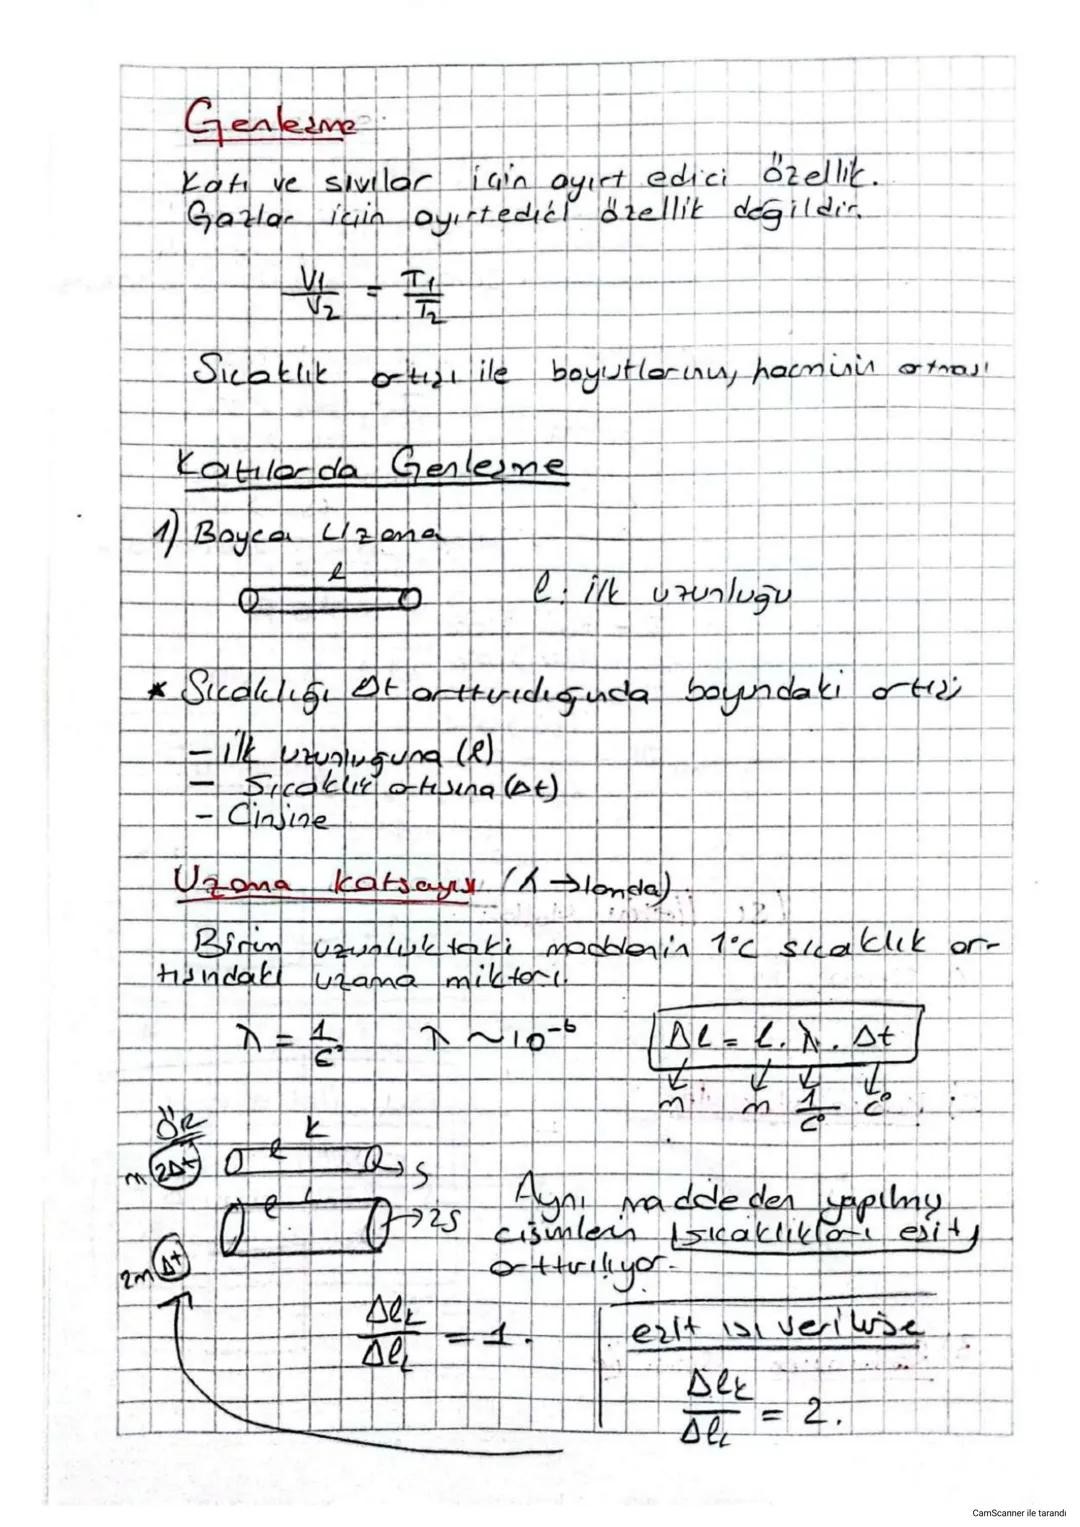 Genleşme
Katı ve sıvılar için ayırt edici özellik.
Gazlar için ayırtedici özellik değildir.
V1/V2 = T1/T2
Sıcaklık artışı ile boyutlarının, hacminin artması
Katılarda Genleşme
1) Boyca Uzama
l
l: ilk uzunluğu
* Sıcaklığı Δt arttırıdığında boyundaki artış;
- ilk uzunluğuna (l)
- Sıcaklık artışına (Δt)
- Cinsine
Uzama katsayısı (λ → landa)
Birim uzunluktaki maddenin 1°C sıcaklık ar-
tışındaki uzama miktarı.
λ = 1/C° λ ~ 10⁻⁶ Δl = l . λ . Δt
m m 1/C° C°
ÖR K
m 2Δt l S
l L 2S
2m Δt
Aynı maddeden yapılmış
cisimlerin sıcaklıkları eşit
arttırılıyor.
ΔlK/ΔlL = 1.
eşit ısı verilirse
ΔlK/ΔlL = 2.
CamScanner ile tarandı